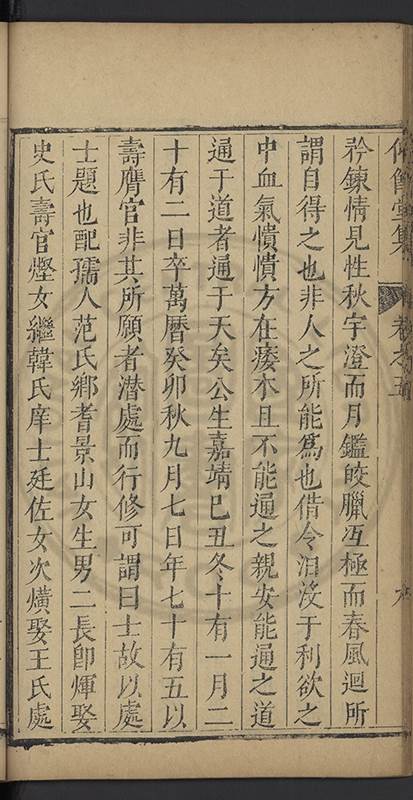 矜鍊情見性秋宇澄而月鑑皎臘冱極而春風迴所
謂自得之也非人之所能爲也借令汨沒于利欲之
中血氣憒憒方在痿木且不能通之親安能通之道
通于道者通于天矣公生嘉靖己丑冬十有一月二
十有二日卒萬曆癸卯秋九月七日年七十有五以
壽膺官非其所願者潛處而行修可謂曰士故以處
士題也配孺人范氏鄉耆景山女生男二長卽煇娶
史氏壽官熞女繼韓氏庠士廷佐女次熿娶王氏處
堂集 卷之五